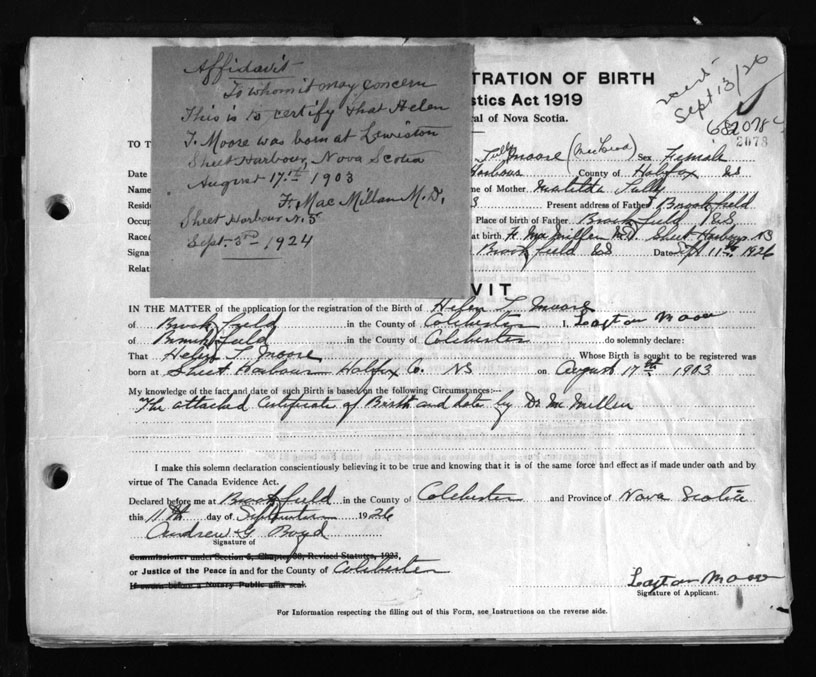 Affidavit
To whom it may concern
This is to certify that Helen
T. Moore was born at Lewiston
Sheet Harbour, Nova Scotia
August 17th 1903
F. Mac Millan M.D.
Sheet Harbour N.S
Sept. 3rd 1924
TRATION OF BIRTH
stics Act 1919
al of Nova Scotia.
Sept 13/26
682078
2078
TO T
Tully Moore Sex Female
Date
Harbour County of Halifax NS
Name
me of Mother Matilda Tully
Resid
S Present address of Father Brookfield
Occup
Place of birth of Father Brookfield NS
Race
at birth F. MacMillan M.D. Sheet Harbour NS
Signa
Brookfield NS Date Sept 11th 1926
Relat
VIT
IN THE MATTER of the application for the registration of the Birth of Helen T Moore
of Brookfield in the County of Colchester I, Layton Moore
of Brookfield in the County of Colchester do solemnly declare:
That Helen T. Moore Whose Birth is sought to be registered was
born at Sheet Harbour Halifax Co. NS on August 17th 1903
My knowledge of the fact and date of such Birth is based on the following Circumstances:—
The attached Certificate of Birth and date by Dr McMillen
I make this solemn declaration conscientiously believing it to be true and knowing that it is of the same force and effect as if made under oath and by
virtue of The Canada Evidence Act.
Declared before me at Brookfield in the County of Colchester and Province of Nova Scotia
this 11th day of September 1926
Andrew G. Boyd
Signature of
Commissioner under Section 6, Chapter 38, Revised Statutes, 1923,
or Justice of the Peace in and for the County of Colchester
If sworn before a Notary Public affix seal.
Layton Moore
Signature of Applicant.
For Information respecting the filling out of this Form, see Instructions on the reverse side.